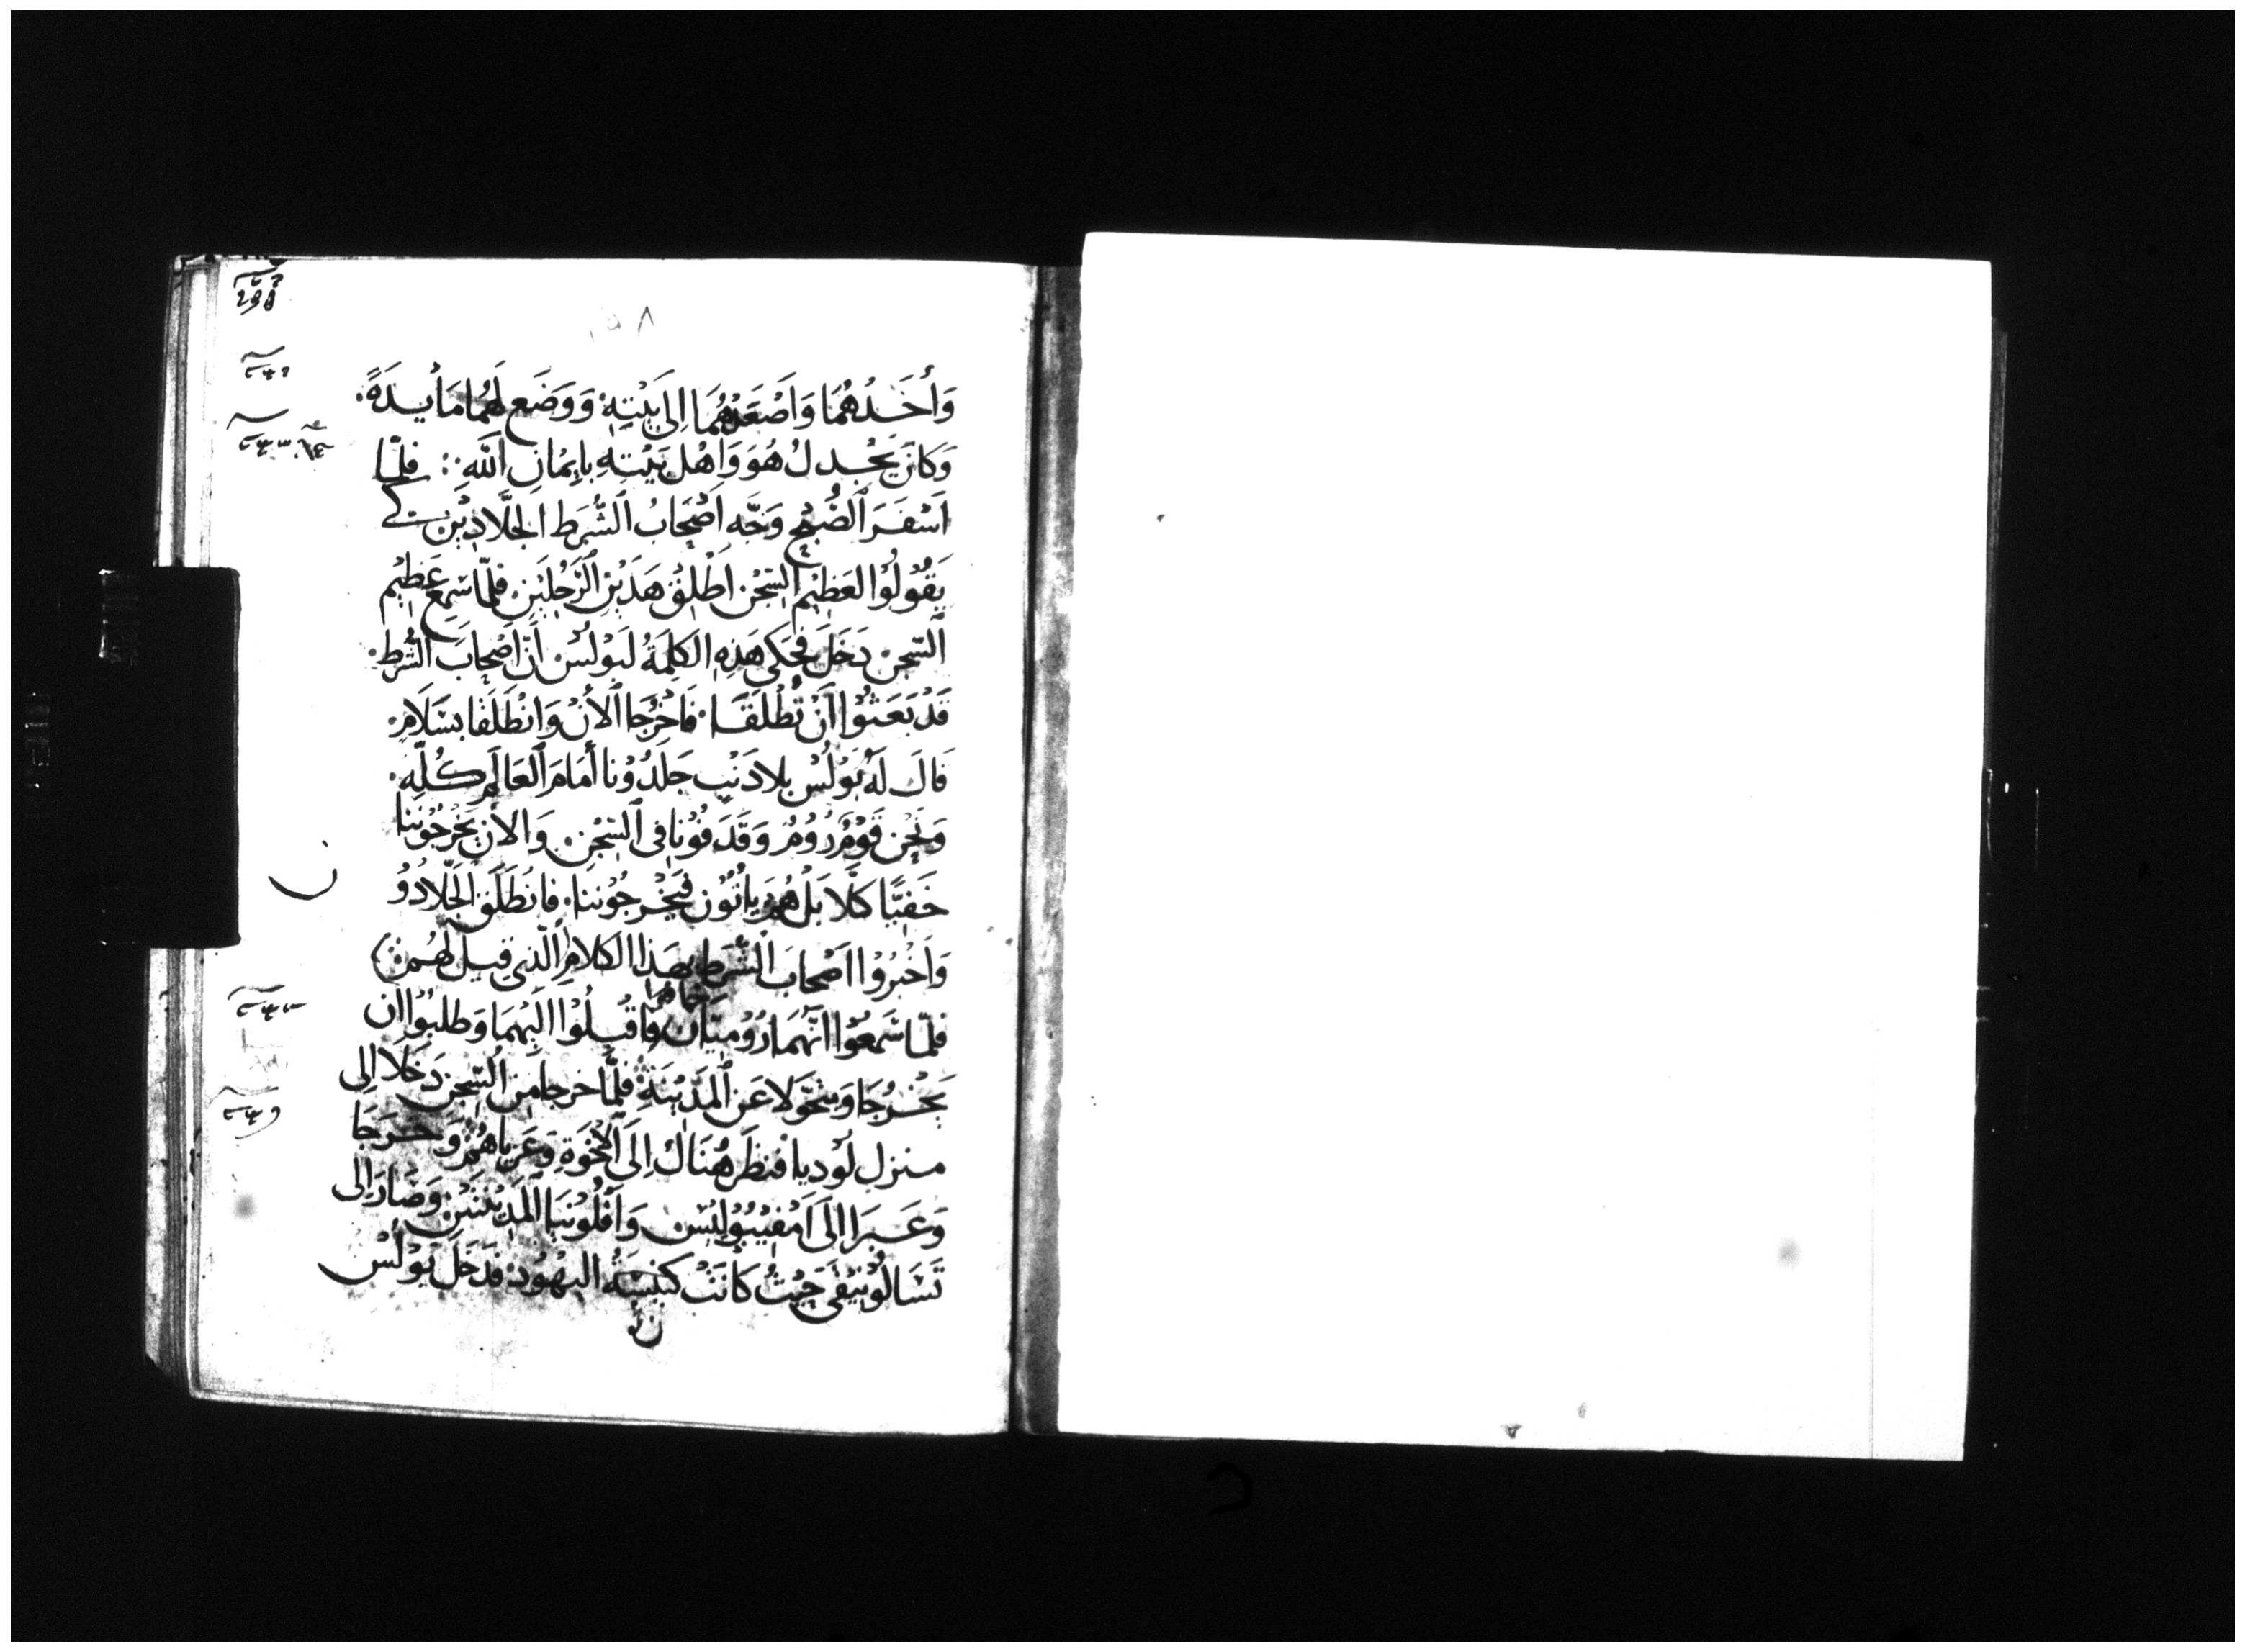 ١٥٨
وَأَخَدُهُمَا وَاَصْعَدَهُمَا اِلَى بَيْتِهِ وَوَضَعَ لَهُمَا مَأيِدَةً.
وَكَانَ يَجْدلُ هُوَ وَاَهْل بَيْتِهِ بِايِمْانِ اَللّٰه ⁘ فَلمَّا
اَسْفَرَ اَلصُّبْح وَجَّه اَصْحَابُ اَلشُّرَط اَلجَلَّادِيْنَ كَے
يَقُوْلُوْا لعَظِيْم اَلسِّجْن اَطْلِقْ هَدَيْنِ اَلرَّجُلَيْنِ. فَلمَّا سَمِعَ عَظِيْم
اَلسِّجن دَخَلَ فَحَكَى هَذِهِ الكَلِمَةُ لبَوْلُسْ اَنَّ اَصْحَابَ الشُّرَط.
قَدْ بَعَثوْا اَنْ تُطْلَقَا. فَاخْرُجَا اَلأَنْ وَانْطَلَقَا بسَلَامِ.
قَالَ لَهُ بَوْلُسْ بِلا دَنْبٍ جَلَدُوْنا أَمَامَ اَلعَالَمِ كُلِّهِ.
وَنَحْن قَوْمٌ رُوْمٌ وَقَدَفُوْنَا فى اَلسِّجْن. وَالاَنْ يَخْرجُوْننا
خَفيًّا كَلَّا بَلْ هُمْ يَاتُوْن فَيَخْرجُوْننا. فانْطَلَقَ الجَلَّادُوْ
وَاَخْبَرُوْا اَصْحابَ الشُّرَط بهَذا الكَلَامِ الَّذِي قيل لَهُمْ ⁘
خافوا
فَلمَّا سَمعُوْا اَنَّهُمَا رُوْميَّان وَاَقْبَلُوْا اَلَيْهِمَا وَطلبُوْا اَن
يَخْرُجَا وَيتحَوَّلا عَن اَلمَدِيْنَةِ ⁘ فَلمَّا خرجا مِن السِّجن دَخَلَا اِلى
منزل لُوْديا فنظَر هُنَاك اِلَى الأخْوَةِ وَعَزياهُمْ وَخَرَجَا
وَعَبَرَا اِلَى اَمْفِيْبُوْلِيْسْ وَاَفَلُوْنيَا المَدِيْنتَيْنِ وَصَارَا اِلى
تَسَالُوْنِيْقَى حَيْثُ كَانَتْ كَنِيْسَةُ اليهُوْد. فدَخَلَ بَوْلُسْ